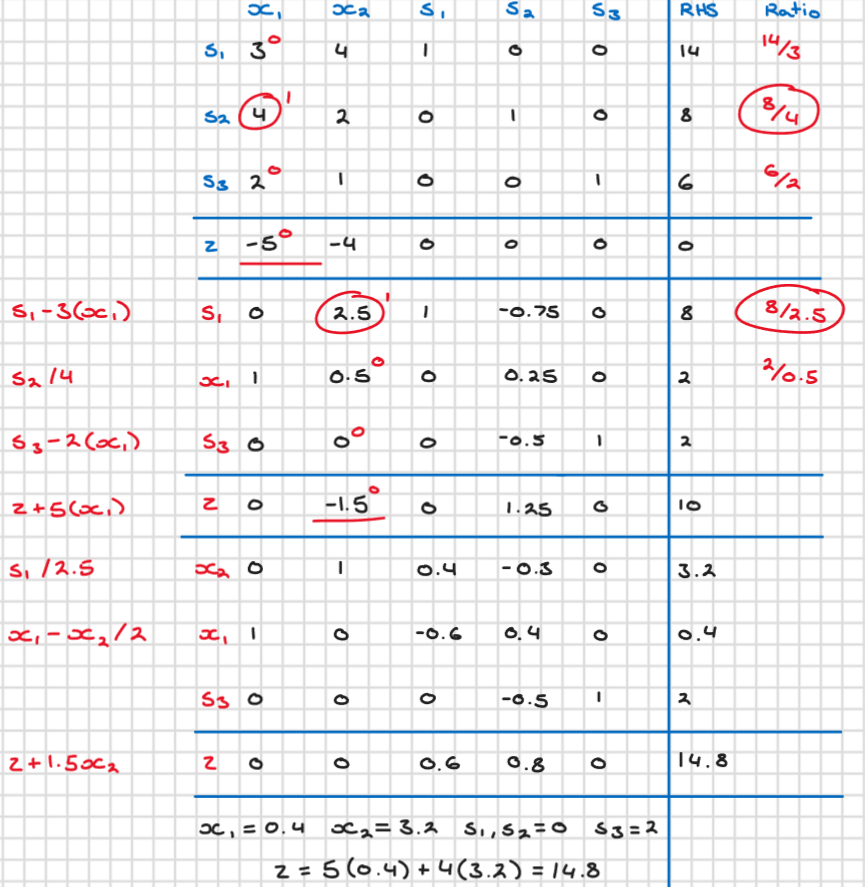 x₁ x₂ s₁ s₂ s₃ RHS Ratio
s₁ 3 0 4 1 0 0 14 14/3
s₂ 4 1 2 0 1 0 8 8/4
s₃ 2 0 1 0 0 1 6 6/2
z -5 0 -4 0 0 0 0
s₁-3(x₁) s₁ 0 2.5 1 1 -0.75 0 8 8/2.5
s₂/4 x₁ 1 0.5 0 0 0.25 0 2 2/0.5
s₃-2(x₁) s₃ 0 0 0 0 -0.5 1 2
z+5(x₁) z 0 -1.5 0 0 1.25 0 10
s₁/2.5 x₂ 0 1 0.4 -0.3 0 3.2
x₁-x₂/2 x₁ 1 0 -0.6 0.4 0 0.4
s₃ 0 0 0 -0.5 1 2
z+1.5x₂ z 0 0 0.6 0.8 0 14.8
x₁=0.4 x₂=3.2 s₁,s₂=0 s₃=2
z=5(0.4)+4(3.2)=14.8